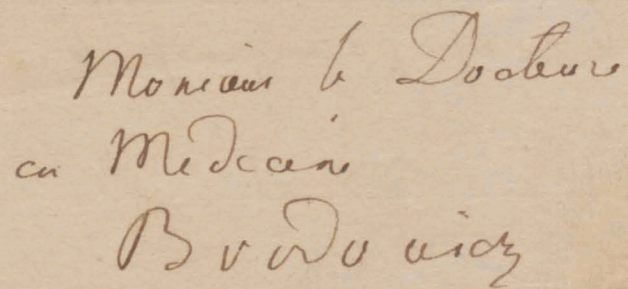 Monsieur le Docteur
en Medecine
Brodowicz